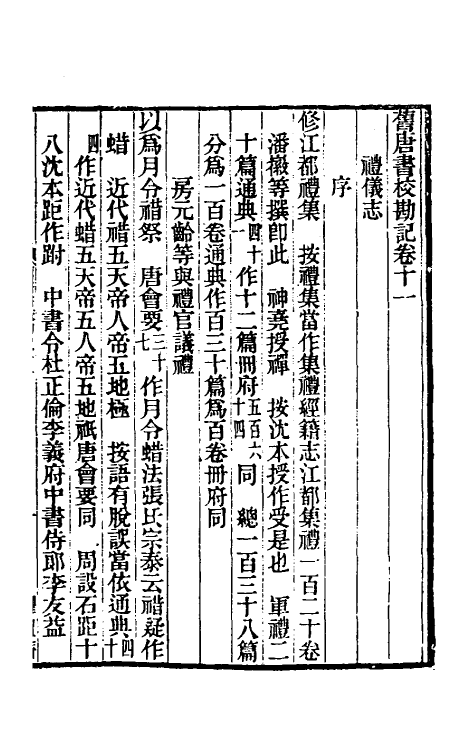 舊唐書校勘記卷十一
禮儀志
序
修江都禮集　按禮集當作集禮經籍志江都集禮一百二十卷
潘徽等撰卽此　神堯授禪　按沈本授作受是也　軍禮二
十篇通典四十一作十二篇冊府五百六十四同　總一百三十八篇
分爲一百卷通典作百三十篇爲百卷冊府同
房元齡等與禮官議禮
以爲月令禇祭　唐會要三十七作月令蜡法張氏宗泰云禇疑作
蜡　近代禇五天帝人帝五地極　按語有脫誤當依通典四十
四作近代蜡五天帝五人帝五地祇唐會要同　周設石距十
八沈本距作跗　中書令杜正倫李義府中書侍郞李友益